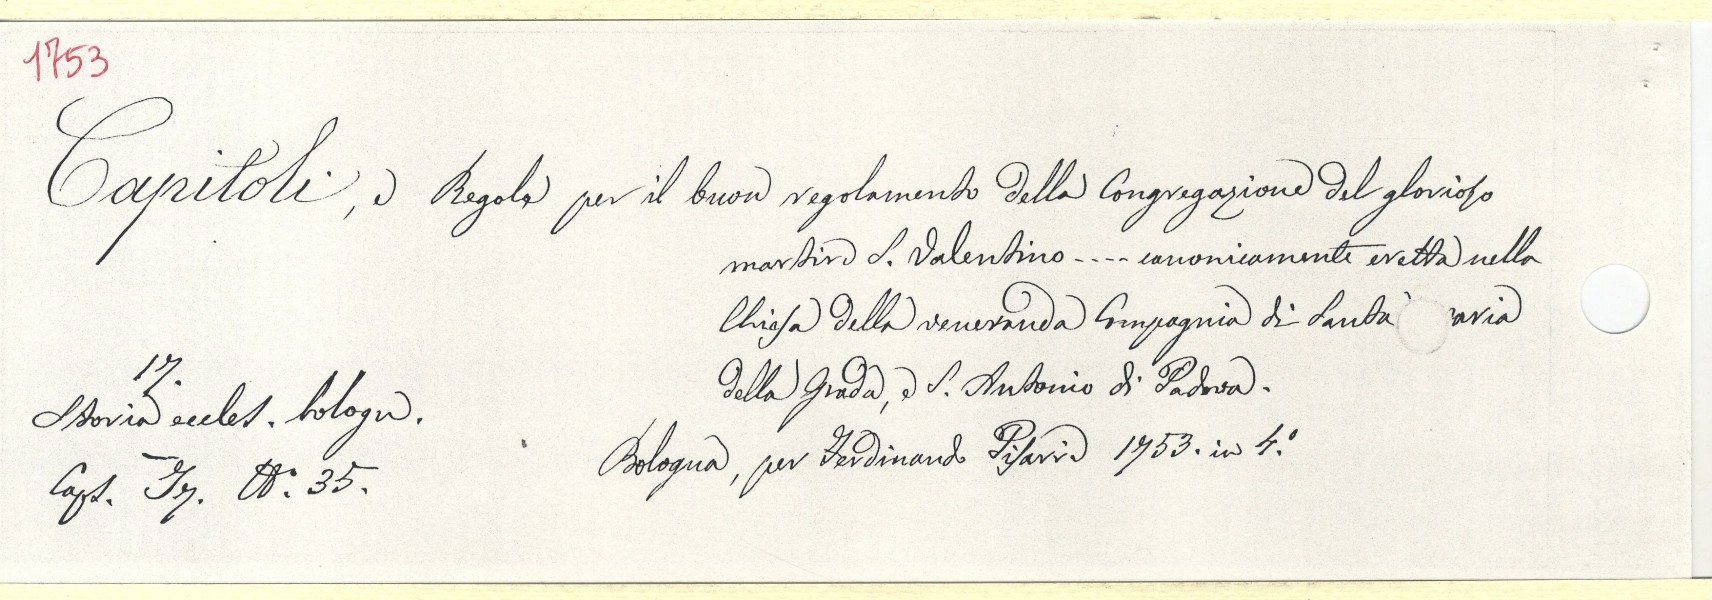 1753
Capitoli, e Regole per il buon regolamento della Congregazione del glorioso
martire S. Valentino ---- canonicamente eretta nella
Chiesa della veneranda Compagnia di Santa aria
della Grada, e S. Antonio di Padova.
17.
Storia eccles. bologn.
Caps. I7. N.° 35.
Bologna, per Ferdinando Pisarri 1753. in 4.°